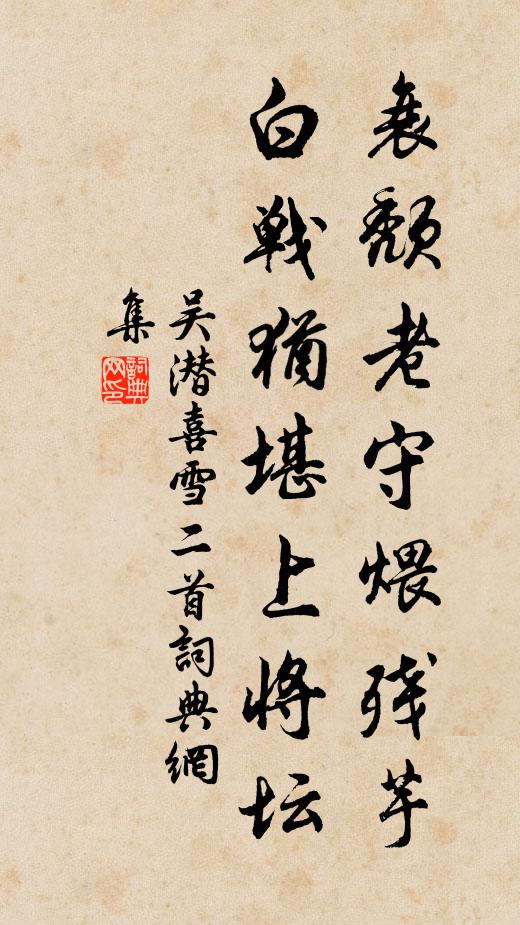 衰颓老守煨残芋
白戦犹堪上将坛
吴潜喜雪二首詞典網
集
詞典
网印